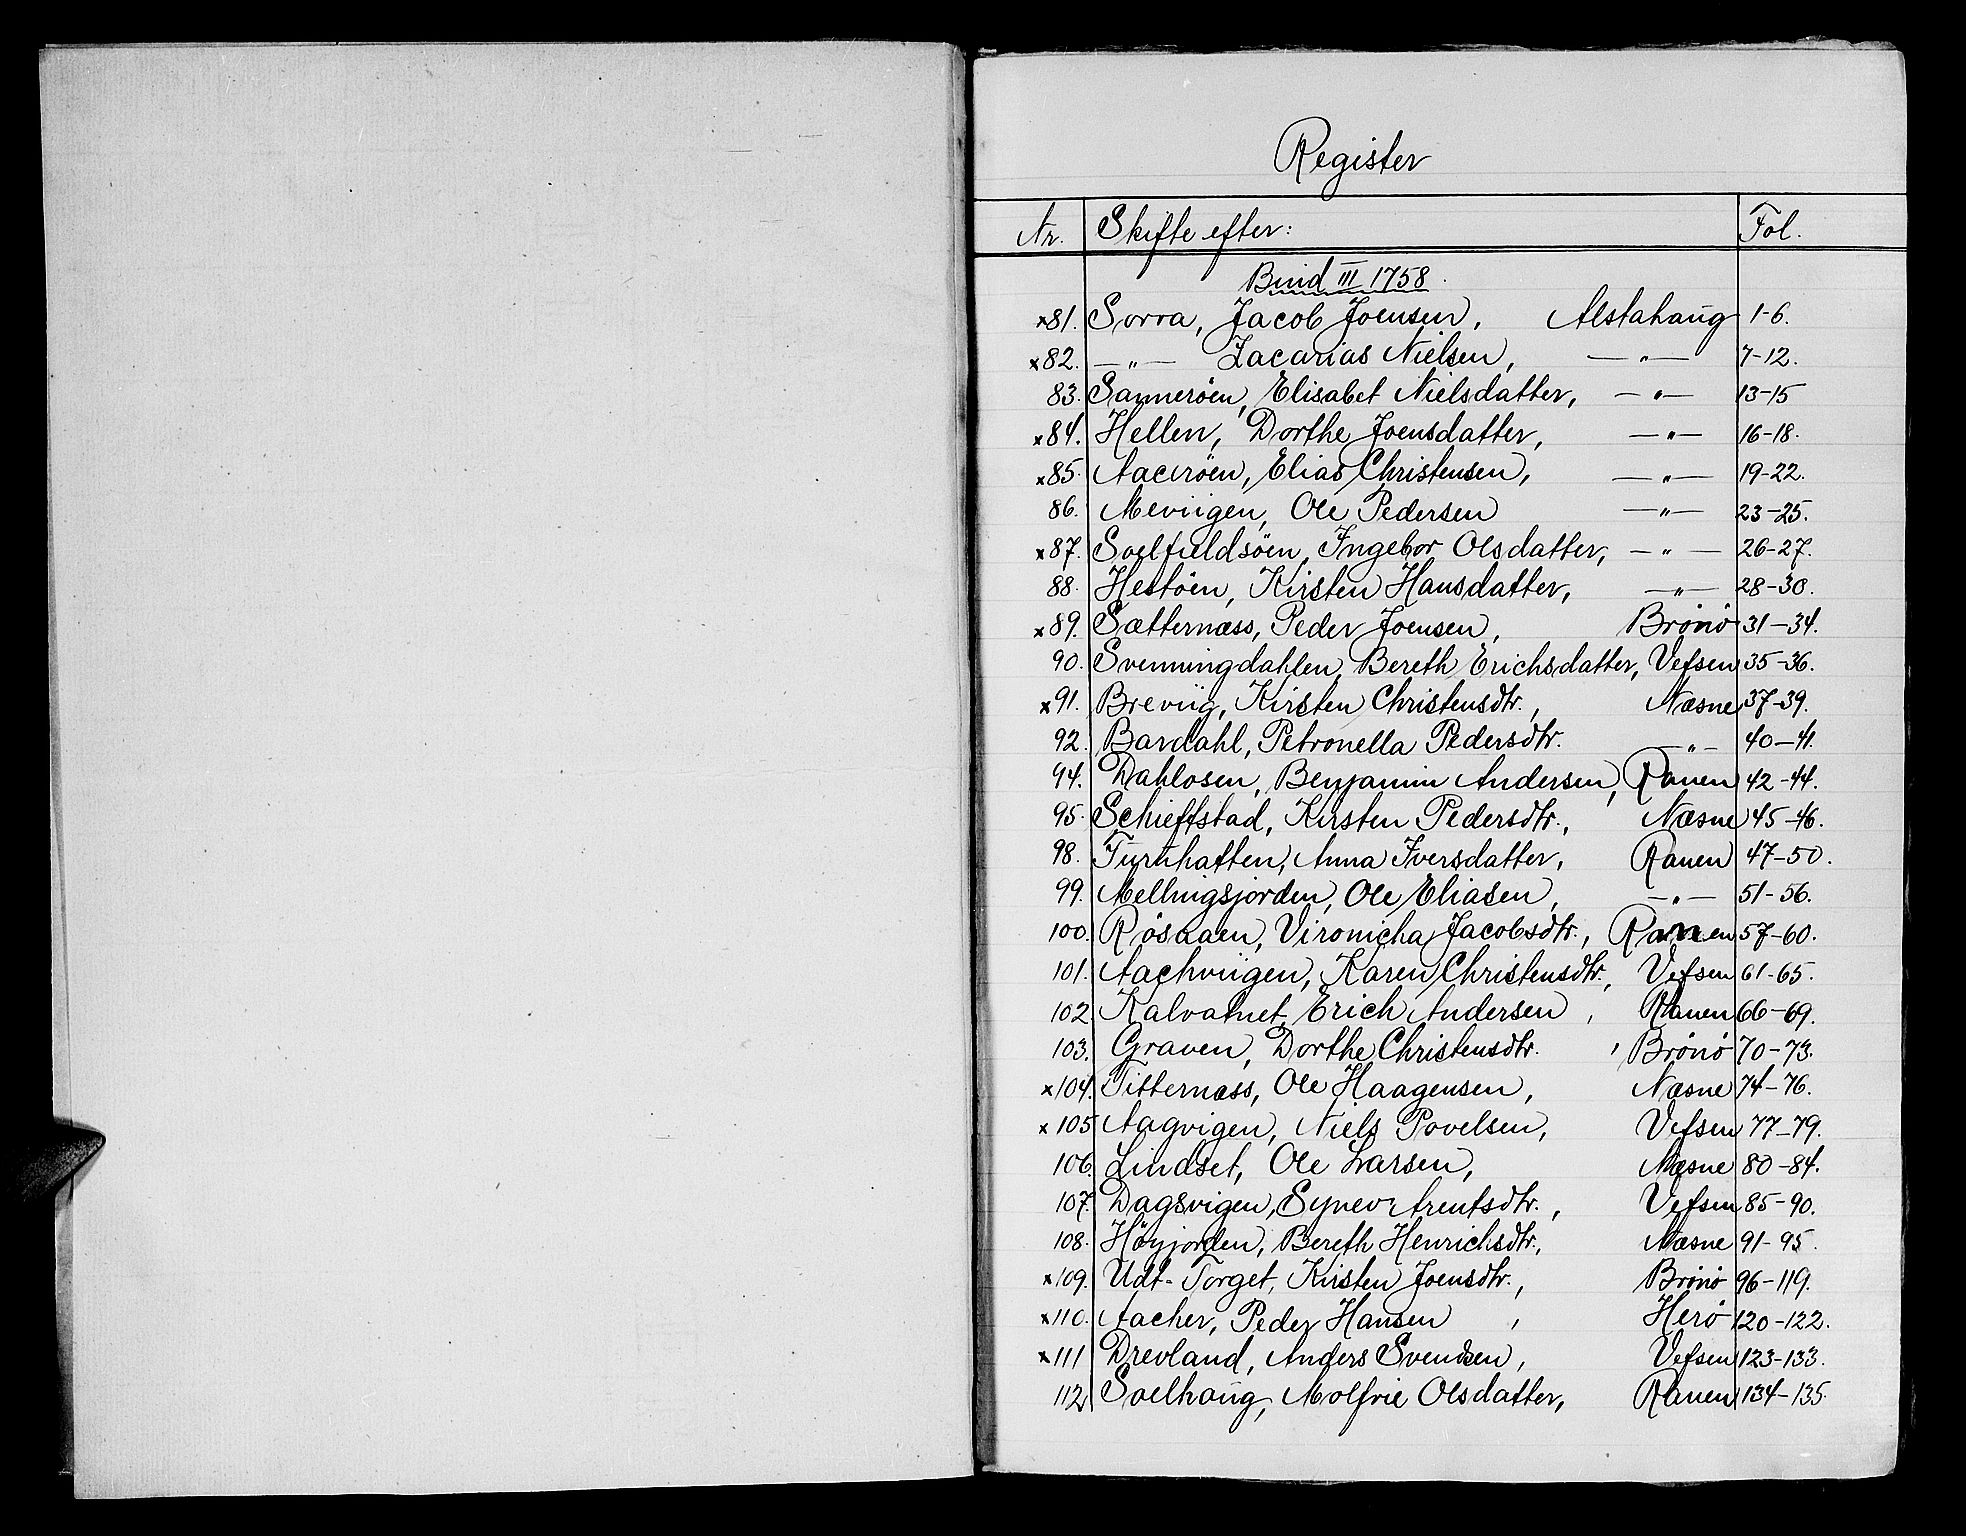 Register
Nr. Skifte efter: Fol.
Bind III 1758.
x81. Sorra, Jacob Joensen, Alstahaug 1-6.
x82. —"— Zacarias Nielsen, —"— 7-12.
83. Sanneröen, Elisabet Nielsdatter, —"— 13-15
x84. Hellen, Dorthe Joensdatter, —"— 16-18.
x85. Aaceröen, Elias Christensen, —"— 19-22.
86. Meviigen, Ole Pedersen —"— 23-25.
x87. Soelfieldsöen, Ingebor Olsdatter, —"— 26-27.
88. Hestöen, Kirsten Hansdatter, —"— 28-30.
x89. Sætternæss, Peder Joensen, Brönö 31-34.
90. Svenningdahlen, Bereth Erichsdatter, Vefsen 35-36.
x91. Breviig, Kirsten Christensdtr., Næsne 37-39.
92. Bardahl, Petronella Pedersdtr. —"— 40-41.
94. Dahlosen, Benjamin Andersen, Ranen 42-44.
95. Schieffstad, Kirsten Pedersdtr., Næsne 45-46.
98. Turnhatten, Anna Iversdatter, Ranen 47-50.
99. Mellingsjorden, Ole Eliasen, —"— 51-56.
100. Rösaaen, Vironicha Jacobsdtr., Ranen 57-60.
101. Aachviigen, Karen Christensdtr., Vefsen 61-65.
102 Kalvatnet, Erich Andersen, Ranen 66-69.
103. Graven, Dorthe Christensdtr., Brönö 70-73.
x104. Titternæss, Ole Haagensen, Næsne 74-76.
x105 Aagvigen, Niels Povelsen, Vefsen 77-79.
106. Lindset, Ole Larsen, Næsne 80-84.
107. Dagsvigen, Synev Arentsdtr., Vefsen 85-90.
108. Höyjorden, Bereth Henrichsdtr., Næsne 91-95.
x109. Udt-Torget, Kirsten Joensdtr., Brönö 96-119.
x110. Aacher, Peder Hansen, Herö 120-122.
x111 Drevland, Anders Svendsen, Vefsen 123-133.
112 Soelhaug, Molfrie Olsdatter, Ranen 134-135.